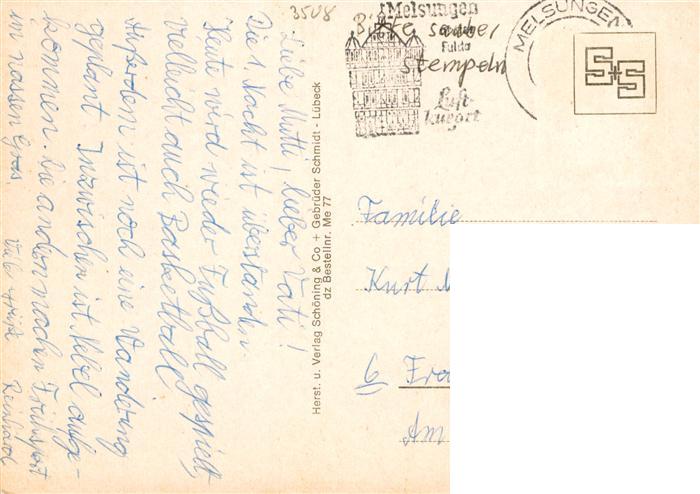 Liebe Mutti, lieber Vati!
Die 1. Nacht ist überstanden.
Heute wird wieder Fußball gespielt,
vielleicht auch Basketball.
Außerdem ist noch eine Wanderung
geplant. Inzwischen ist Nebel aufge-
kommen. Die andern machen Frühsport
im nassen Gras.
Reinhard
Herst. u. Verlag Schöning & Co + Gebrüder Schmidt - Lübeck
dz Bestellnr. Me 77
3508
Melsungen
Fulda
Luft-
kurort
Bitte sauber
stempeln
MELSUNGEN
S+S
Familie
Kurt
6
Am